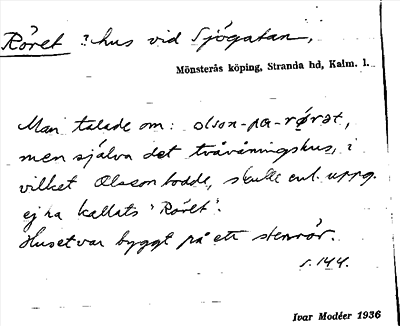 Röret ? hus vid Sjögatan,
Mönsterås köping, Stranda hd, Kalm. l.
Man talade om: olson-pa-rǿrət,
men själva det tvåvåningshus, i
vilket Olsson bodde, skulle enl. uppg.
ej ha kallats 'Röret'.
Huset var byggt på ett stenrör.
s. 144.
Ivar Modéer 1936